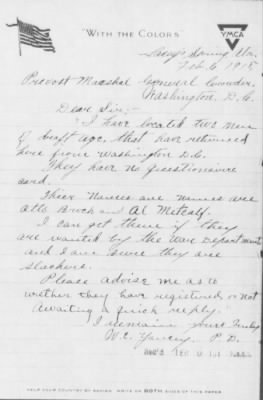 "WITH THE COLORS"
YMCA
Feb 6, 1918
Provost Marshal General Crowder,
Washington, D.C.
Dear Sir:-
I have located two men
of draft age, that have returned
here from Washington D.C.
They have no questionaire
card.
Their Names are names are
Otto Brock and Al Metcalf.
I can get them if they
are wanted by the War Department
and I am sure they are
slackers.
Please advise me as to
wether they have registered or not
Awaiting a quick reply.
I remain yours Truly
W.C. Yancey. P.D.
HELP YOUR COUNTRY BY SAVING. WRITE ON BOTH SIDES OF THIS PAPER